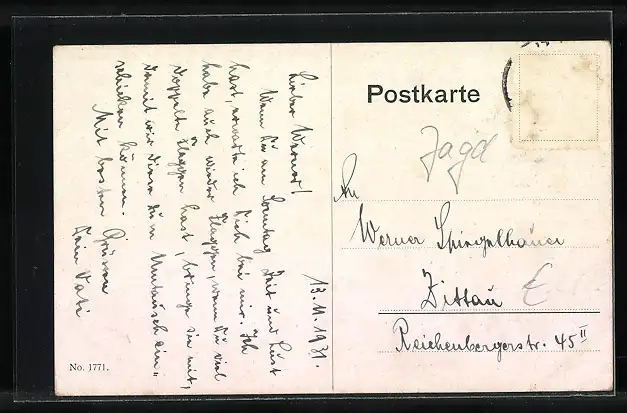 13.11.1931.
Lieber Werner!
Wenn Du am Sonntag Zeit und Lust
hast, erwarte ich Dich bei mir. Ich
habe auch wieder Flaggen, wenn Du viel
doppelte Flaggen hast, bringe sie mit,
damit wir diese zum Umtausch ein-
schicken können.
Mit besten Grüßen
Dein Vati
No. 1771.
Postkarte
Jagd
An
Werner Spiegelhauer
Zittau
Reichenbergerstr. 45 II